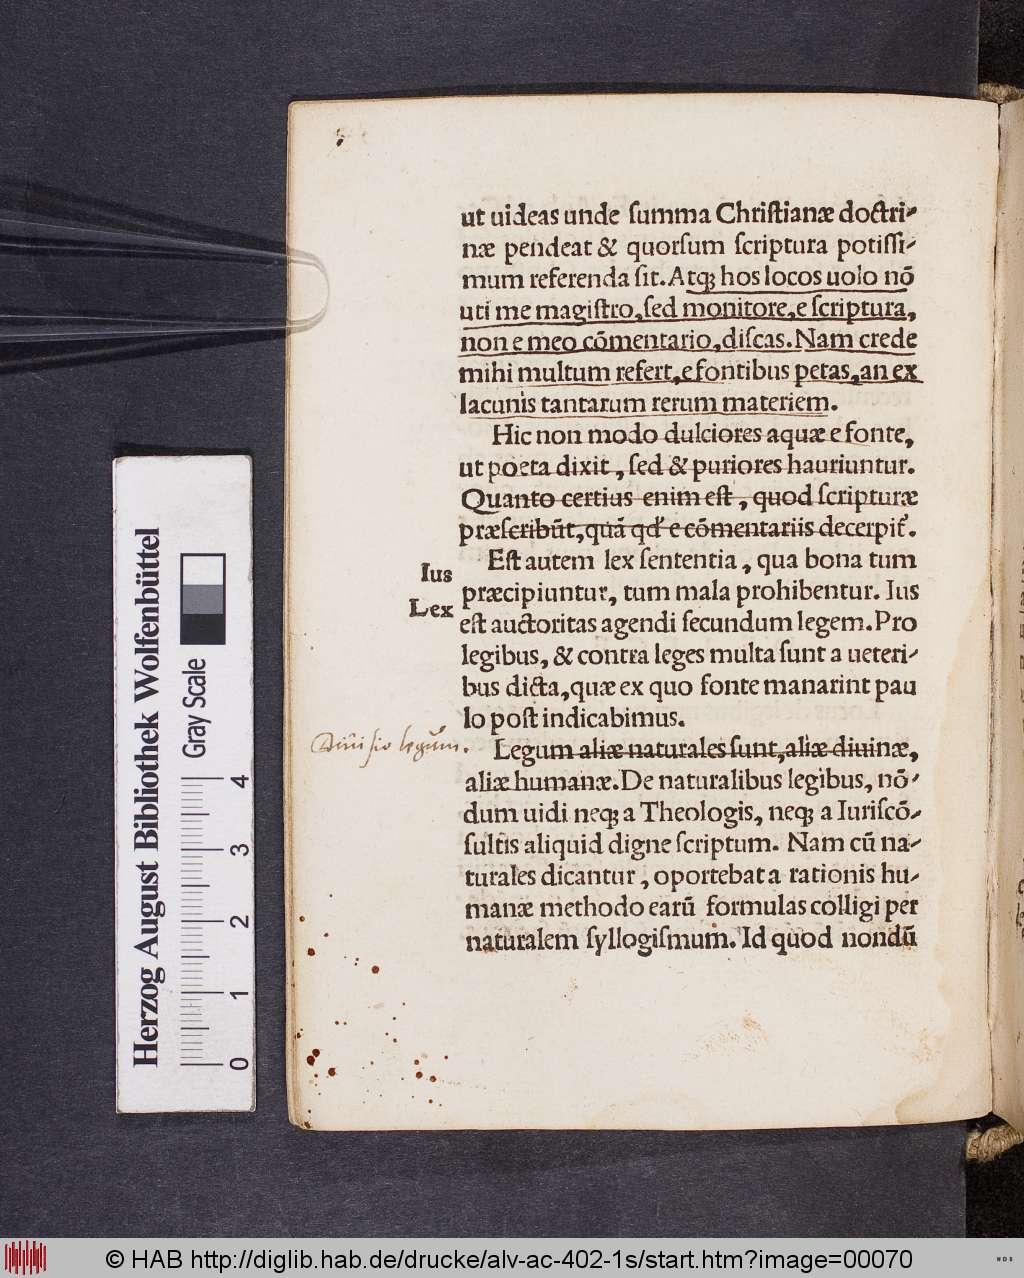 ut uideas unde ſumma Chriſtianæ doctri⸗
næ pendeat & quorſum ſcriptura potiſſi⸗
mum referenda ſit. Atqꝫ hos locos uolo nō
uti me magiſtro, ſed monitore, e ſcriptura,
non e meo cōmentario, diſcas. Nam crede
mihi multum refert, e fontibus petas, an ex
lacunis tantarum rerum materiem.
Hic non modo dulciores aquæ e fonte,
ut poeta dixit, ſed & puriores hauriuntur.
Quanto certius enim eſt, quod ſcripturæ
præſcribūt, quā qd' e cōmentariis decerpit᷑.
Eſt autem lex ſententia, qua bona tum
Ius
præcipiuntur, tum mala prohibentur. Ius
Lex
eſt auctoritas agendi ſecundum legem. Pro
legibus, & contra leges multa ſunt a ueteri⸗
bus dicta, quæ ex quo fonte manarint pau
lo poſt indicabimus.
Diuiſio legum.
Legum aliæ naturales ſunt, aliæ diuinæ,
aliæ humanæ. De naturalibus legibus, nō⸗
dum uidi neqꝫ a Theologis, neqꝫ a Iuriſcō⸗
ſultis aliquid digne ſcriptum. Nam cū na⸗
turales dicantur, oportebat a rationis hu⸗
manæ methodo earū formulas colligi per
naturalem ſyllogiſmum. Id quod nondū
Herzog August Bibliothek Wolfenbüttel
Gray Scale
0 1 2 3 4
© HAB http://diglib.hab.de/drucke/alv-ac-402-1s/start.htm?image=00070